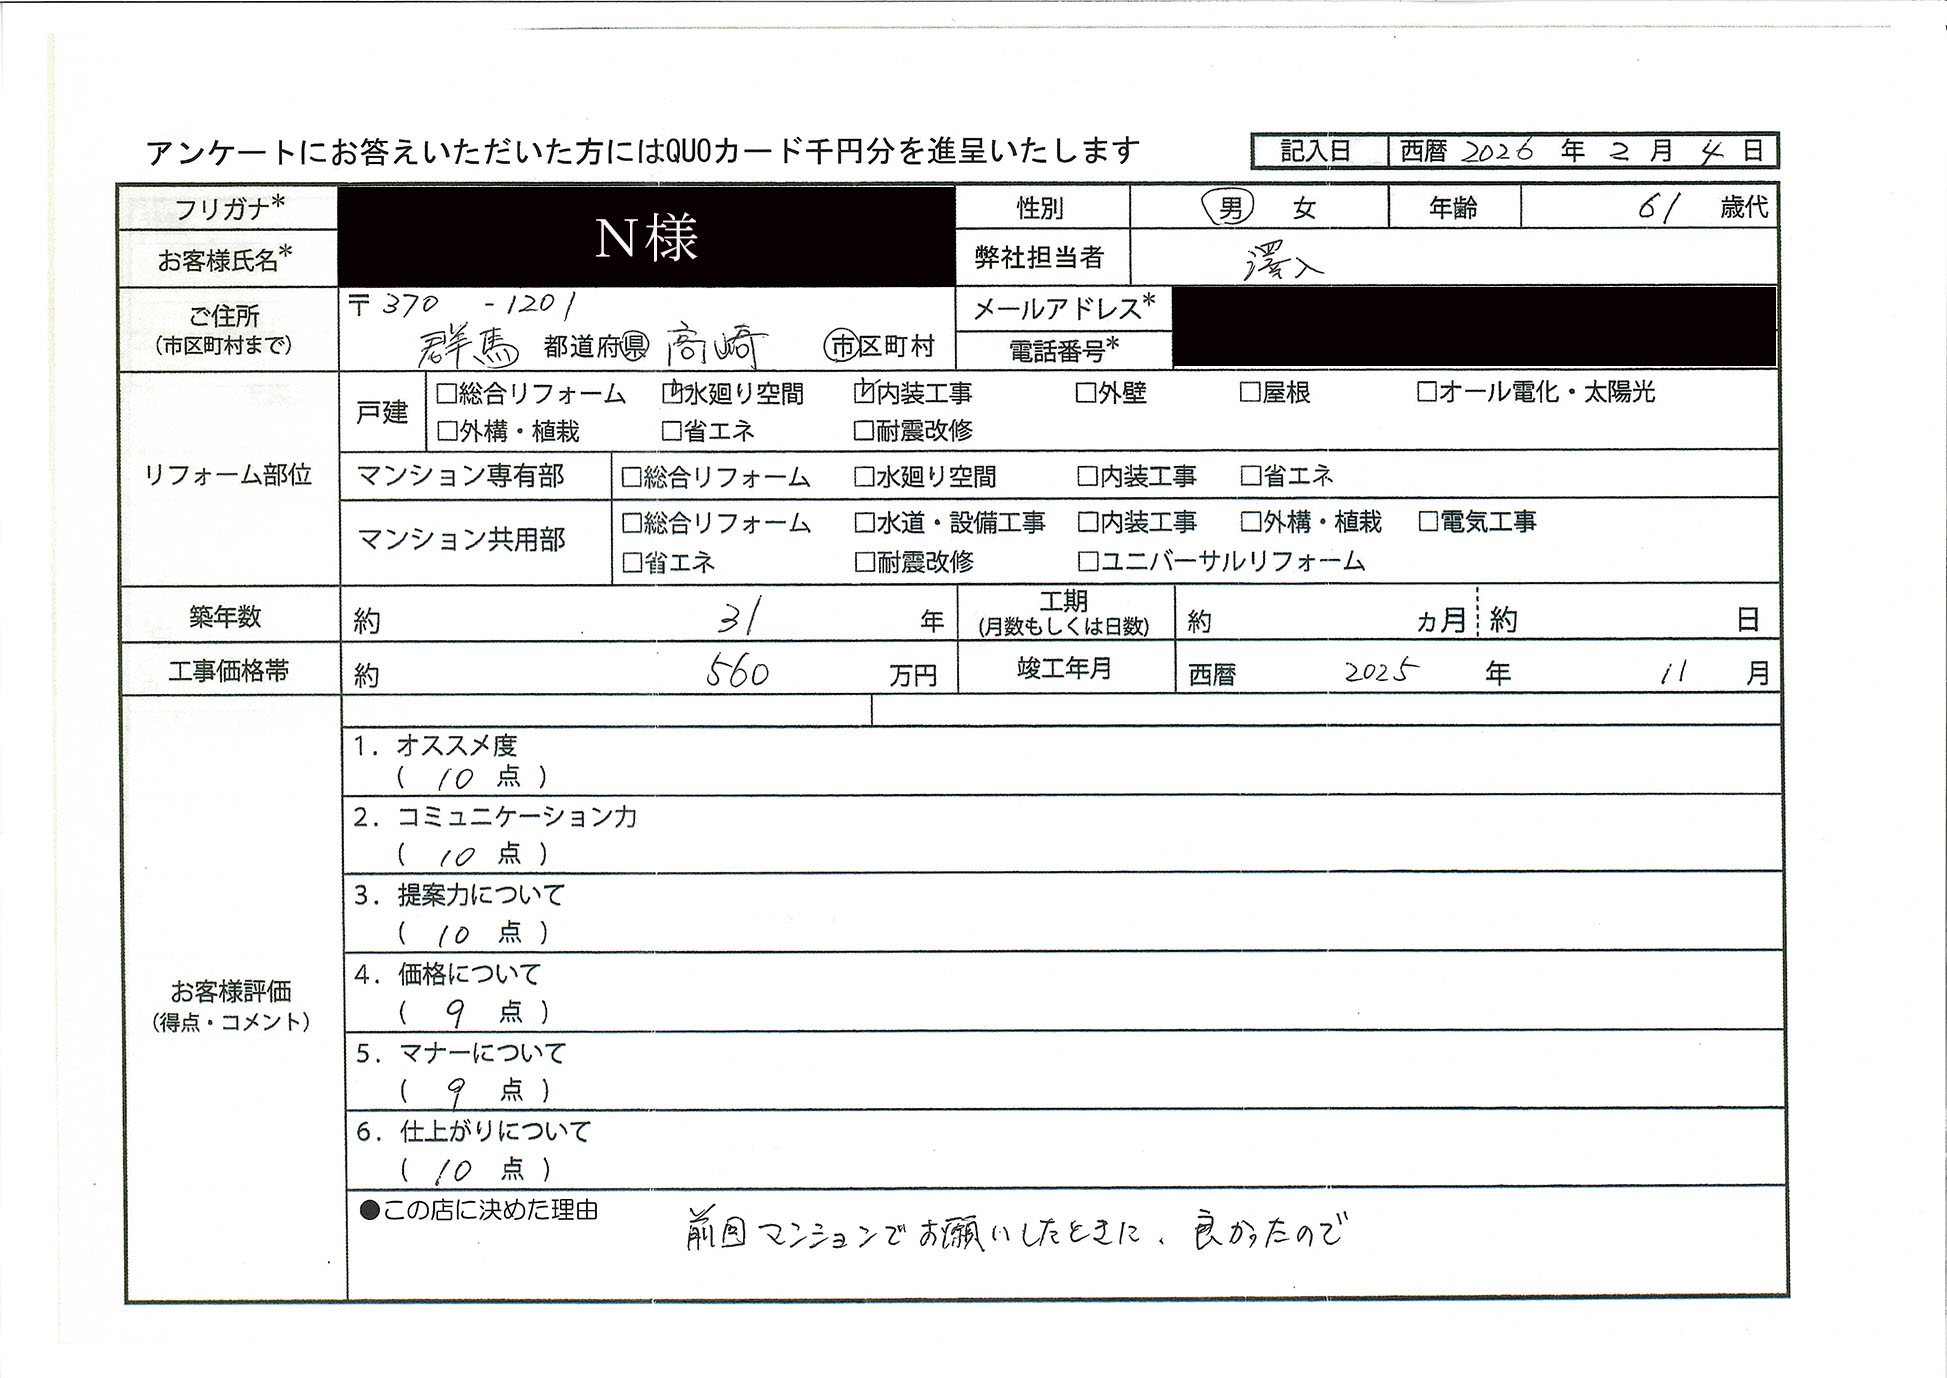 アンケートにお答えいただいた方にはQUOカード千円分を進呈いたします
記入日 西暦 2026 年 2 月 4 日
フリガナ* N様 性別 男 女 年齢 61 歳代
お客様氏名* 弊社担当者 澤入
ご住所 (市区町村まで) 〒370 -1201 メールアドレス*
群馬 都道府県 高崎 市区町村 電話番号*
リフォーム部位
戸建 □総合リフォーム ☑水廻り空間 ☑内装工事 □外壁 □屋根 □オール電化・太陽光
□外構・植栽 □省エネ □耐震改修
マンション専有部 □総合リフォーム □水廻り空間 □内装工事 □省エネ
マンション共用部 □総合リフォーム □水道・設備工事 □内装工事 □外構・植栽 □電気工事
□省エネ □耐震改修 □ユニバーサルリフォーム
築年数 約 31 年 工期 (月数もしくは日数) 約 カ月 約 日
工事価格帯 約 560 万円 竣工年月 西暦 2025 年 11 月
お客様評価
(得点・コメント)
1. オススメ度
( 10 点 )
2. コミュニケーション力
( 10 点 )
3. 提案力について
( 10 点 )
4. 価格について
( 9 点 )
5. マナーについて
( 9 点 )
6. 仕上がりについて
( 10 点 )
●この店に決めた理由
前回マンションでお願いしたときに、良かったので